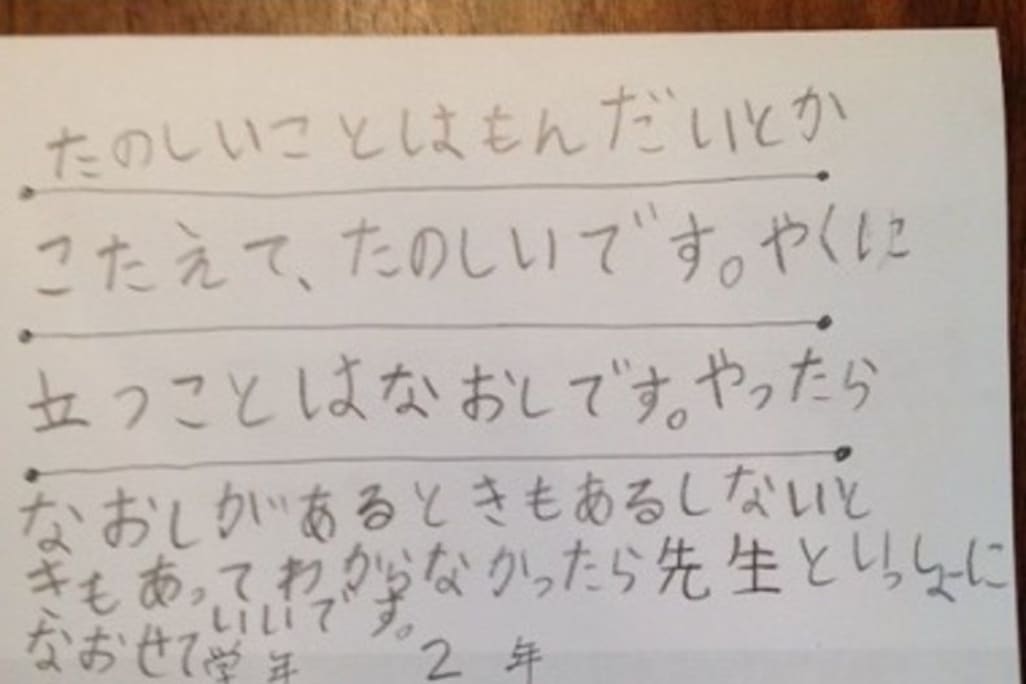 たのしいことはもんだいとか
こたえて、たのしいです。やくに
立つことはなおしです。やったら
なおしがあるときもあるしないと
きもあってわからなかったら先生といっしょに
なおせていいです。
学年 2年